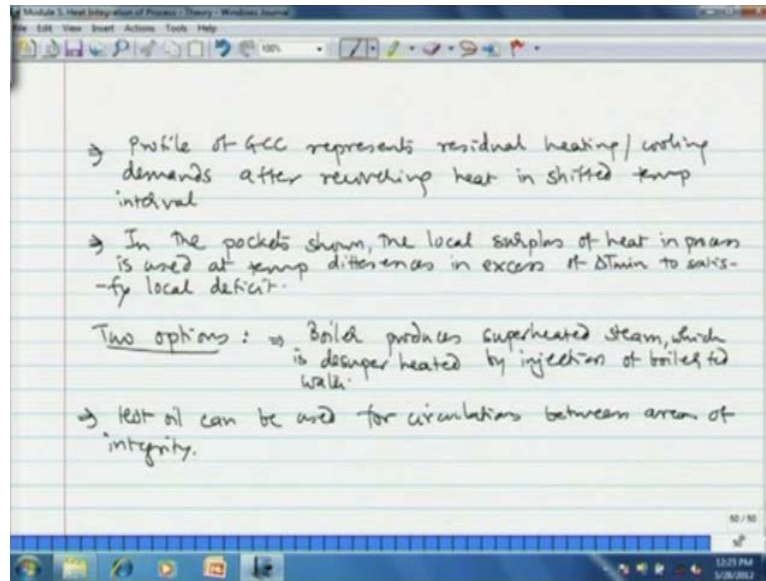 Module 5. Heat Integration of Process - Theory - Windows Journal
File Edit View Insert Actions Tools Help
100%
⇒ Profile of GCC represents residual heating / cooling
demands after recovering heat in shifted temp
interval
⇒ In the pockets shown, the local surplus of heat in process
is used at temp differences in excess of ΔTmin to satis-
-fy local deficit.
Two options : ⇒ Boiler produces superheated steam, which
is desuper heated by injection of boiler fed
water.
⇒ Hot oil can be used for circulations between areas of
integrity.
50 / 50
12:23 PM
5/28/2012